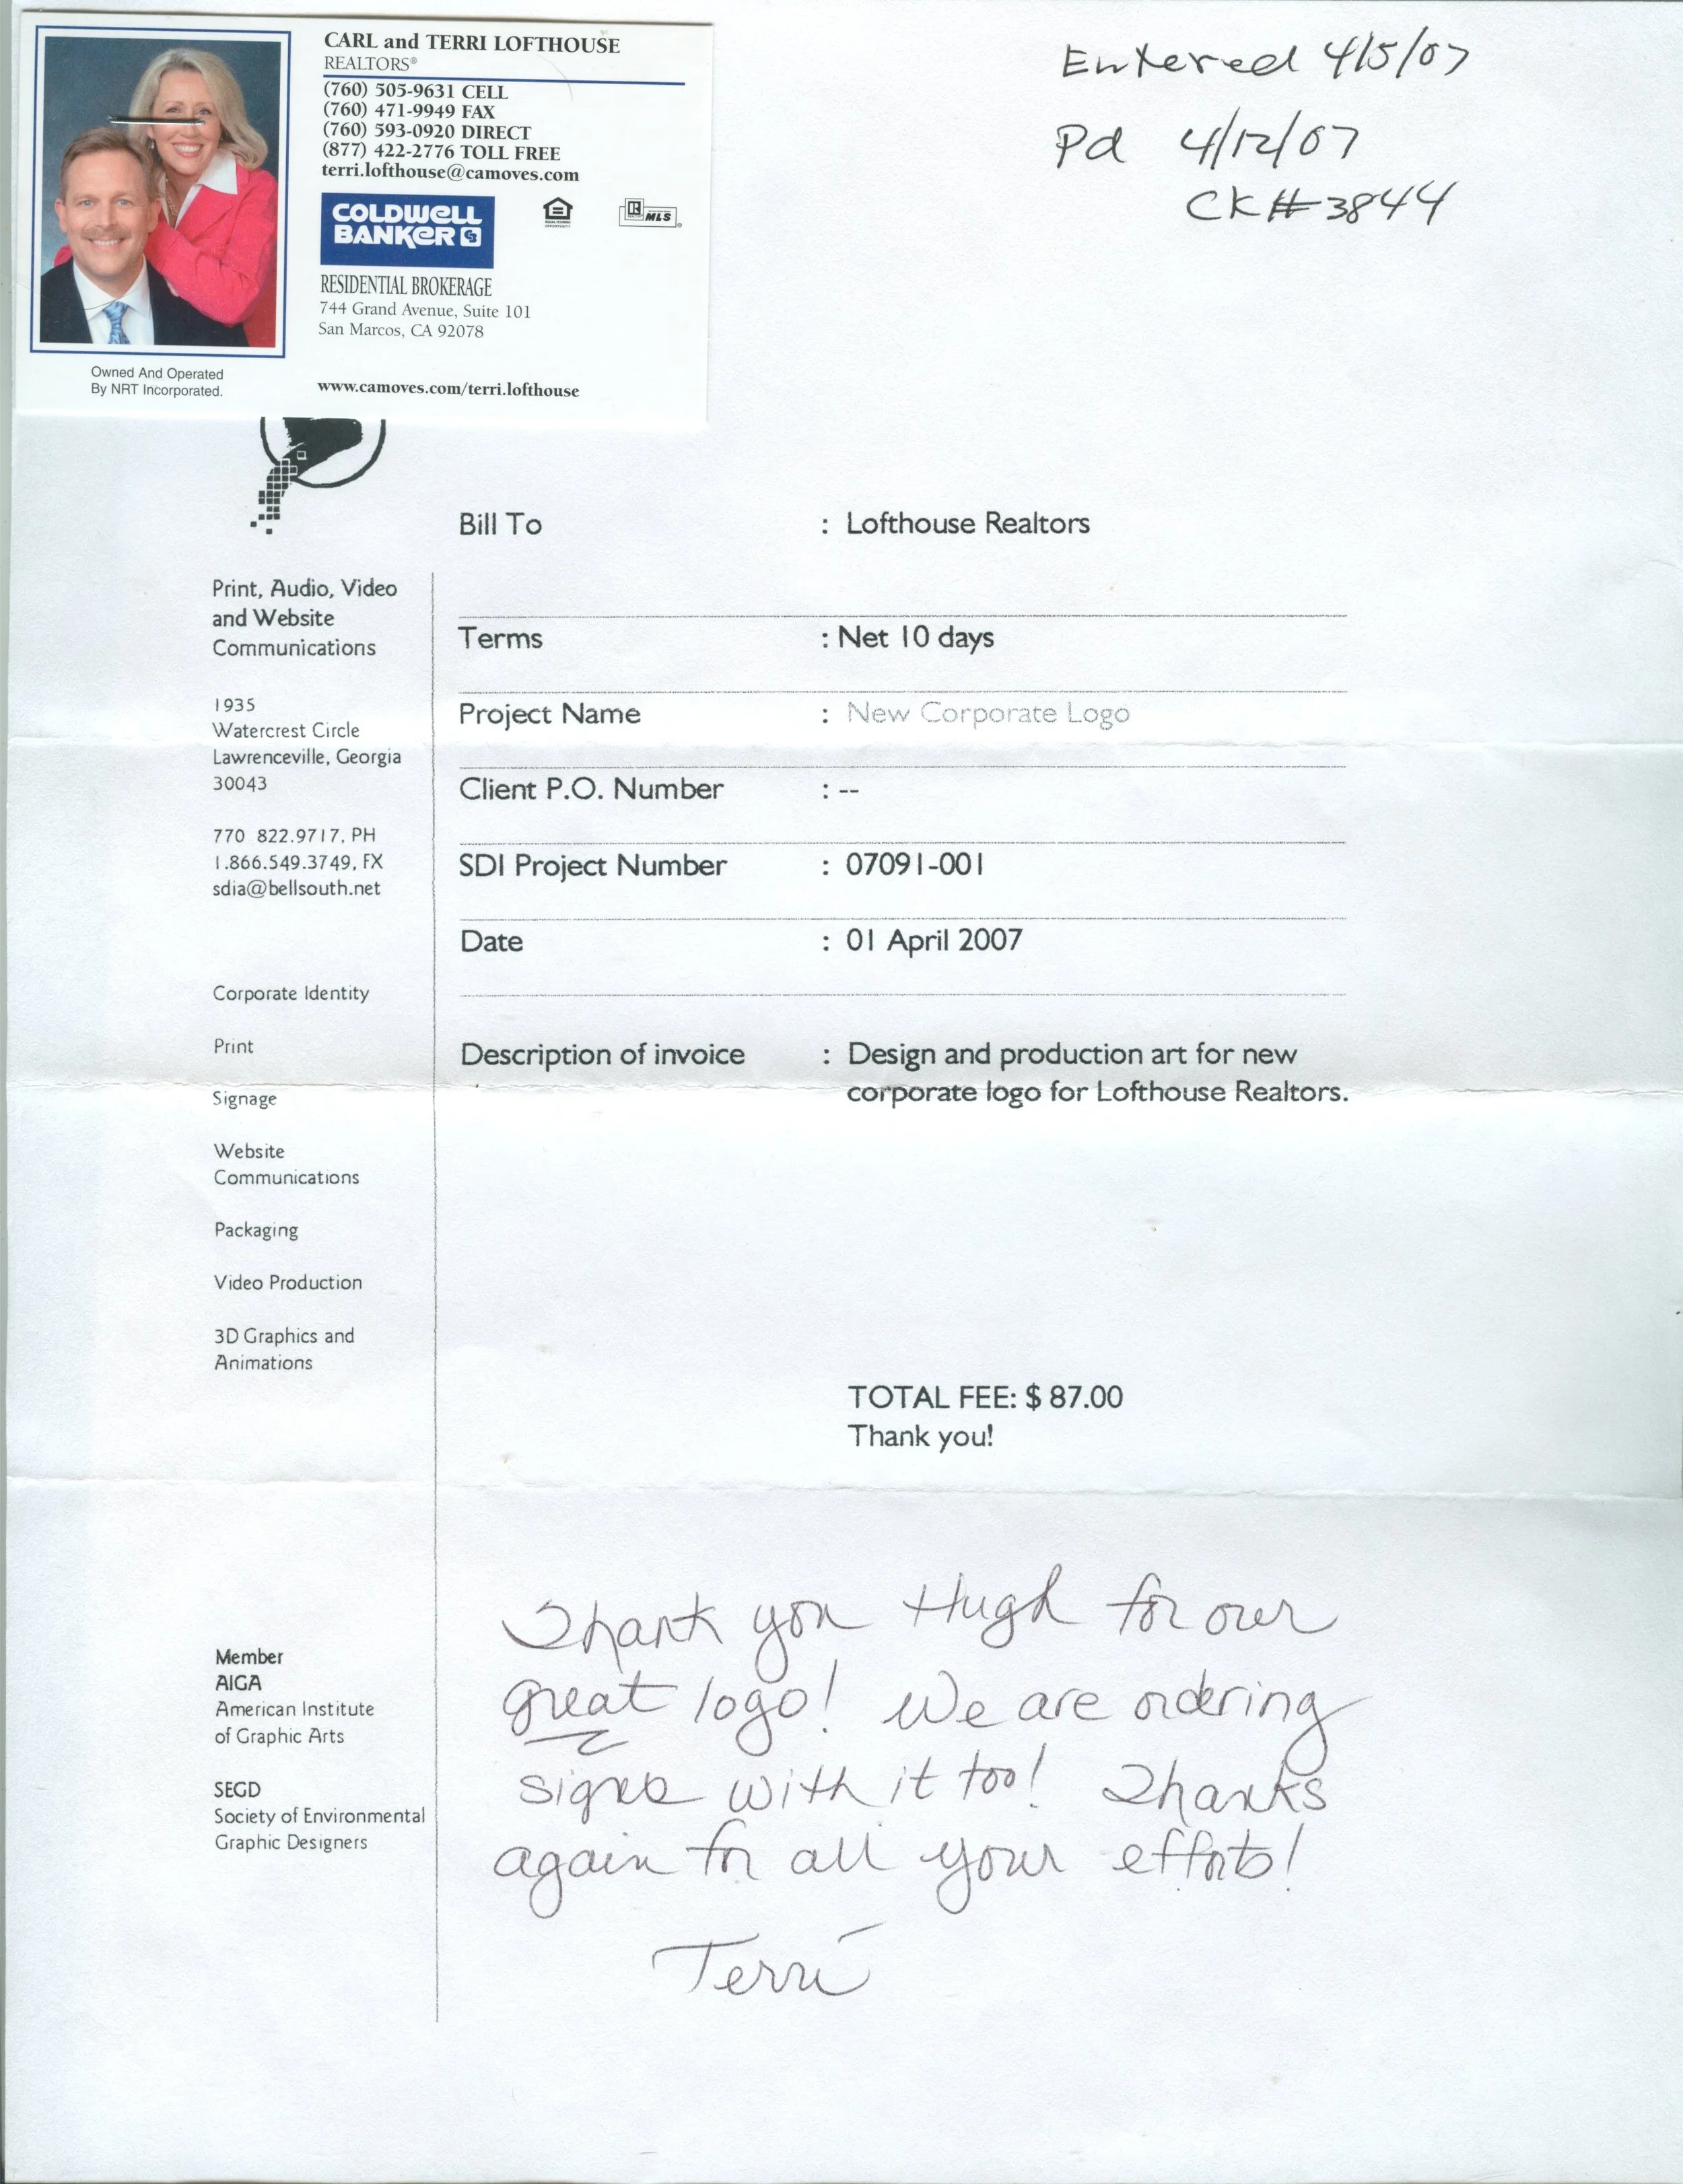 CARL and TERRI LOFTHOUSE
REALTORS®
(760) 505-9631 CELL
(760) 471-9949 FAX
(760) 593-0920 DIRECT
(877) 422-2776 TOLL FREE
terri.lofthouse@camoves.com
COLDWELL
BANKER
EQUAL HOUSING
OPPORTUNITY
R
MLS
RESIDENTIAL BROKERAGE
744 Grand Avenue, Suite 101
San Marcos, CA 92078
Owned And Operated
By NRT Incorporated.
www.camoves.com/terri.lofthouse
Entered 4/5/07
Pd 4/12/07
CK#3844
Print, Audio, Video
and Website
Communications
1935
Watercrest Circle
Lawrenceville, Georgia
30043
770 822.9717, PH
1.866.549.3749, FX
sdia@bellsouth.net
Corporate Identity
Print
Signage
Website
Communications
Packaging
Video Production
3D Graphics and
Animations
Member
AIGA
American Institute
of Graphic Arts
SEGD
Society of Environmental
Graphic Designers
Bill To : Lofthouse Realtors
Terms : Net 10 days
Project Name : New Corporate Logo
Client P.O. Number : --
SDI Project Number : 07091-001
Date : 01 April 2007
Description of invoice : Design and production art for new
corporate logo for Lofthouse Realtors.
TOTAL FEE: $ 87.00
Thank you!
Thank you Hugh for our
great logo! We are ordering
signs with it too! Thanks
again for all your efforts!
Terri